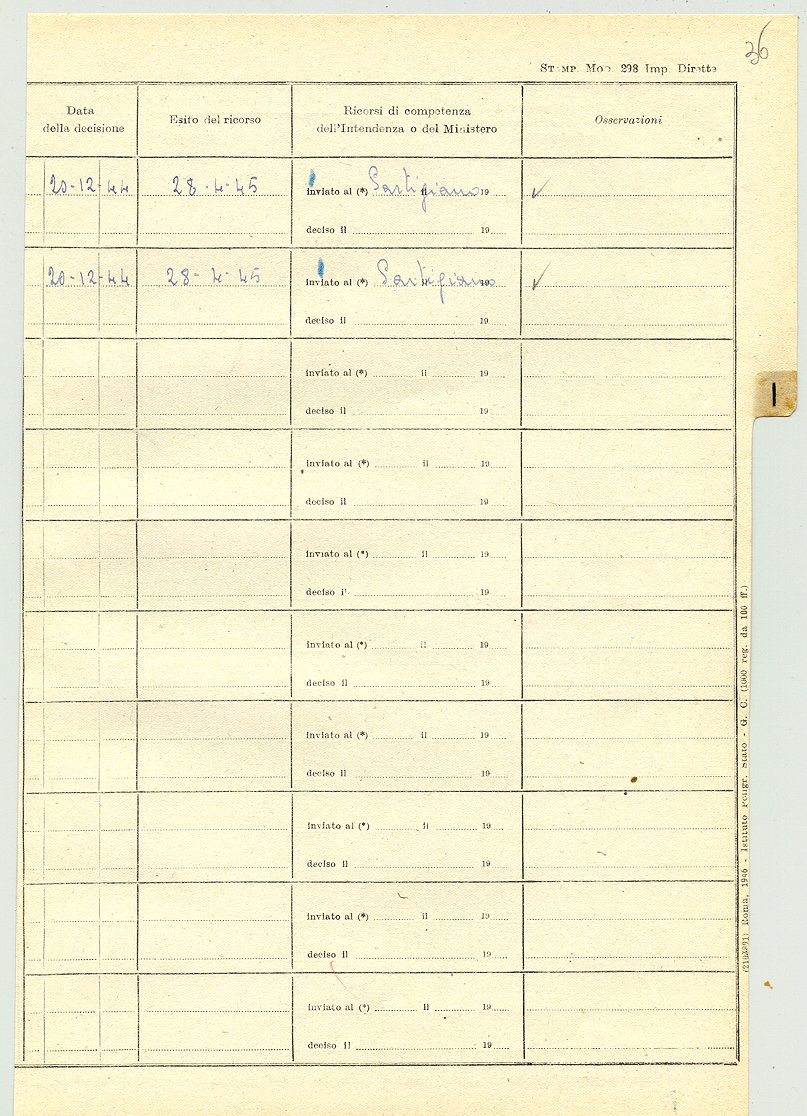 36
STAMP. MOD. 298 Imp. Dirette
Data della decisione
Esito del ricorso
Ricorsi di competenza dell'Intendenza o del Ministero
Osservazioni
20-12-44 28-4-45 inviato al (*) Partigiano il 19
deciso il 19
20-12-44 28-4-45 inviato al (*) Partigiano il 19
deciso il 19
inviato al (*) il 19
deciso il 19
inviato al (*) il 19
deciso il 19
inviato al (*) il 19
deciso il 19
inviato al (*) il 19
deciso il 19
inviato al (*) il 19
deciso il 19
inviato al (*) il 19
deciso il 19
inviato al (*) il 19
deciso il 19
inviato al (*) il 19
deciso il 19
I
Roma, 1946 - Istituto Poligr. Stato - G. C. (2000 reg. da 100 ff.)